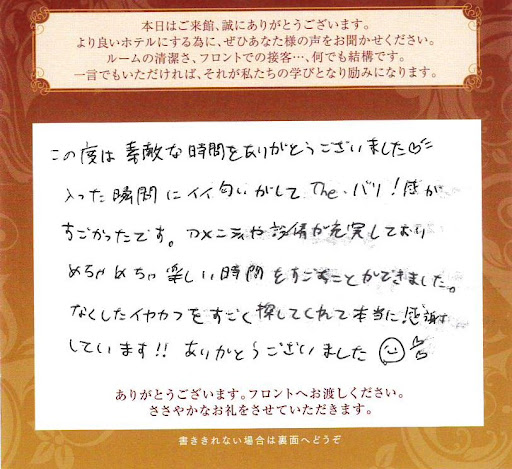 本日はご来館、誠にありがとうございます。
より良いホテルにする為に、ぜひあなた様の声をお聞かせください。
ルームの清潔さ、フロントでの接客…、何でも結構です。
一言でもいただければ、それが私たちの学びとなり励みになります。
この度は素敵な時間をありがとうございました♡
入った瞬間にイイ匂いがして The・バリ!感が
すごかったです。アメニティや設備が充実しており
めちゃめちゃ楽しい時間をすごすことができました。
なくしたイヤカフをすごく探してくれて本当に感謝
しています!! ありがとうございました
ありがとうございます。フロントへお渡しください。
ささやかなお礼をさせていただきます。
書ききれない場合は裏面へどうぞ